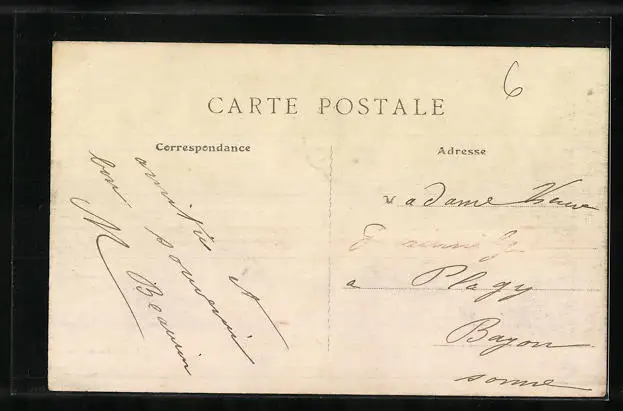 6
CARTE POSTALE
Correspondance
Adresse
amitié et
bon souvenir
M Beauvin
Madame
a Plagy
Bayon
somme